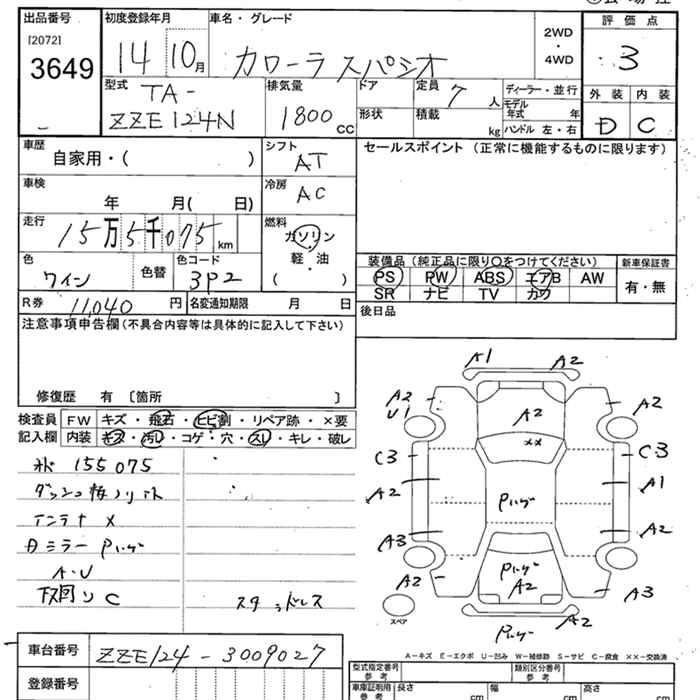 出品番号 初度登録年月 車名・グレード 評価点
[2072]
3649
14 10月 カローラ スパシオ
2WD
・
4WD
3
型式 排気量 ドア 定員 7人 ディーラー・並行
TA-
ZZE124N 1800cc
形状 積載 kg
モデル年式 年
ハンドル 左・右
外装 内装
D C
車歴 自家用・( )
シフト AT
セールスポイント(正常に機能するものに限ります)
車検 年 月( 日)
冷房 AC
走行 15万5千075km
燃料 ガソリン・軽油・( )
色 ワイン 色替 色コード 3P2
装備品(純正品に限り○をつけてください) 新車保証書
PS PW ABS エアB AW 有・無
SR ナビ TV カワ
R券 11,040円 名変通知期限 月 日
後日品
注意事項申告欄(不具合内容等は具体的に記入して下さい)
修復歴 有〔箇所 〕
検査員記入欄
FW キズ・飛石・ヒビ割・リペア跡・×要
内装 キズ・汚レ・コゲ・穴・スレ・キレ・破レ
155075
アンテナ ×
ミラー
A・U
下回り C
スタッドレス
A1 A2
A2
U1
A2
A2
××
C3 C3
A2 A1
A3 A2
A2 A2 A3
A2
スペア
A-キズ E-エクボ U-凹み W-補修跡 S-サビ C-腐食 ××-交換済
車台番号 ZZE124-3009027
登録番号
型式指定番号 参考 類別区分番号 参考
車庫証明用 参考 長さ cm 幅 cm 高さ cm